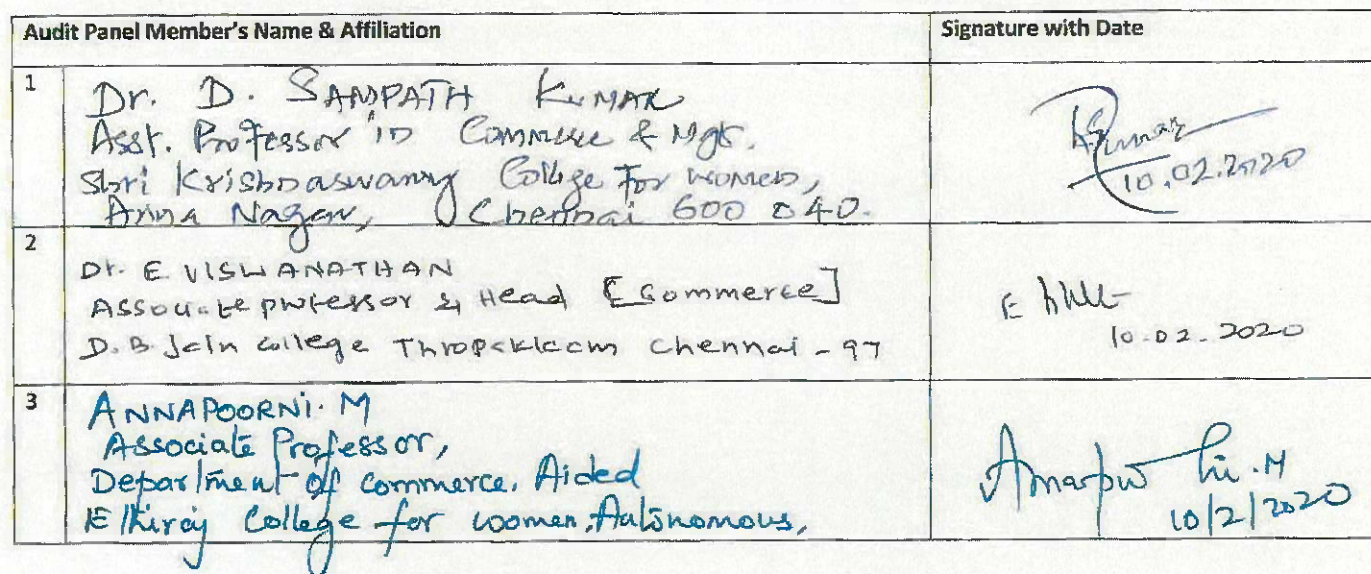 Audit Panel Member's Name & Affiliation
Signature with Date
1
Dr. D. SAMPATH KUMAR
Asst. Professor in Commerce & Mgt.
Shri Krishnaswamy College For women,
Anna Nagar, Chennai 600 040.
10.02.2020
2
Dr. E VISWANATHAN
Associate professor & Head [Commerce]
D.B. Jain college Chennai - 97
E
10.02.2020
3
ANNAPOORNI. M
Associate Professor,
Department of Commerce. Aided
Ethiraj College for women, Autonomous,
10/2/2020